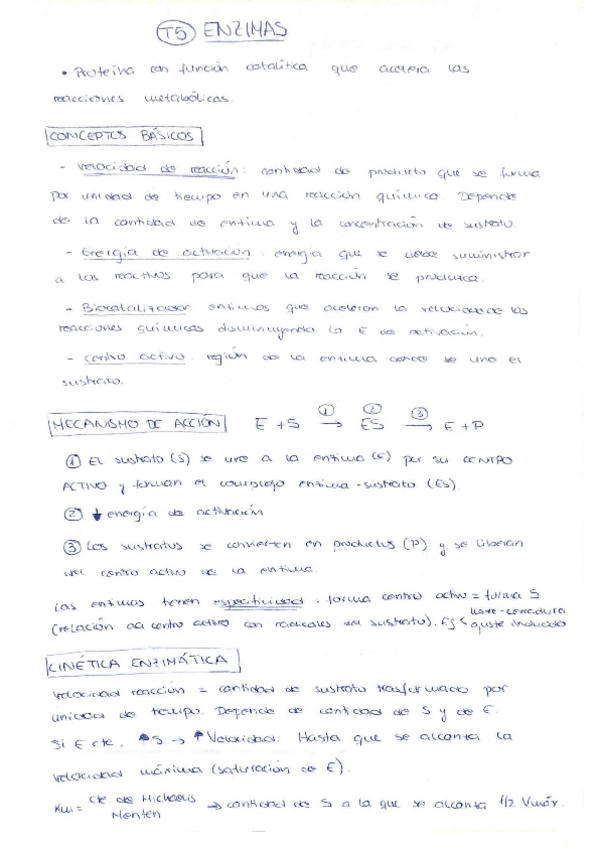 T5 ENZIMAS
• Proteína con función catalítica que acelera las
reacciones metabólicas.
CONCEPTOS BÁSICOS
- Velocidad de reacción: cantidad de producto que se forma
por unidad de tiempo en una reacción química. Depende
de la cantidad de enzima y la concentración de sustrato.
- Energía de activación: energía que se debe suministrar
a los reactivos para que la reacción se produzca.
- Biocatalizador enzimas que aceleran la velocidad de las
reacciones químicas disminuyendo la E de activación.
- Centro activo: región de la enzima donde se une el
sustrato.
MECANISMO DE ACCIÓN E + S ① → ② ES ③ → E + P
① El sustrato (S) se une a la enzima (E) por su CENTRO
ACTIVO y forman el complejo enzima-sustrato (ES).
② ↓ energía de activación
③ Los sustratos se convierten en productos (P) y se liberan
del centro activo de la enzima.
Las enzimas tienen especificidad: forma centro activo = forma S
(relación del centro activo con radicales del sustrato). Ej < llave-cerradura
ajuste inducido
CINÉTICA ENZIMÁTICA
Velocidad reacción = cantidad de sustrato trasformado por
unidad de tiempo. Depende de cantidad de S y de E.
Si E cte, ↑S → ↑ Velocidad. Hasta que se alcanza la
velocidad máxima (saturación de E).
Km = cte de Michaelis Menten → cantidad de S a la que se alcanza 1/2 Vmáx.